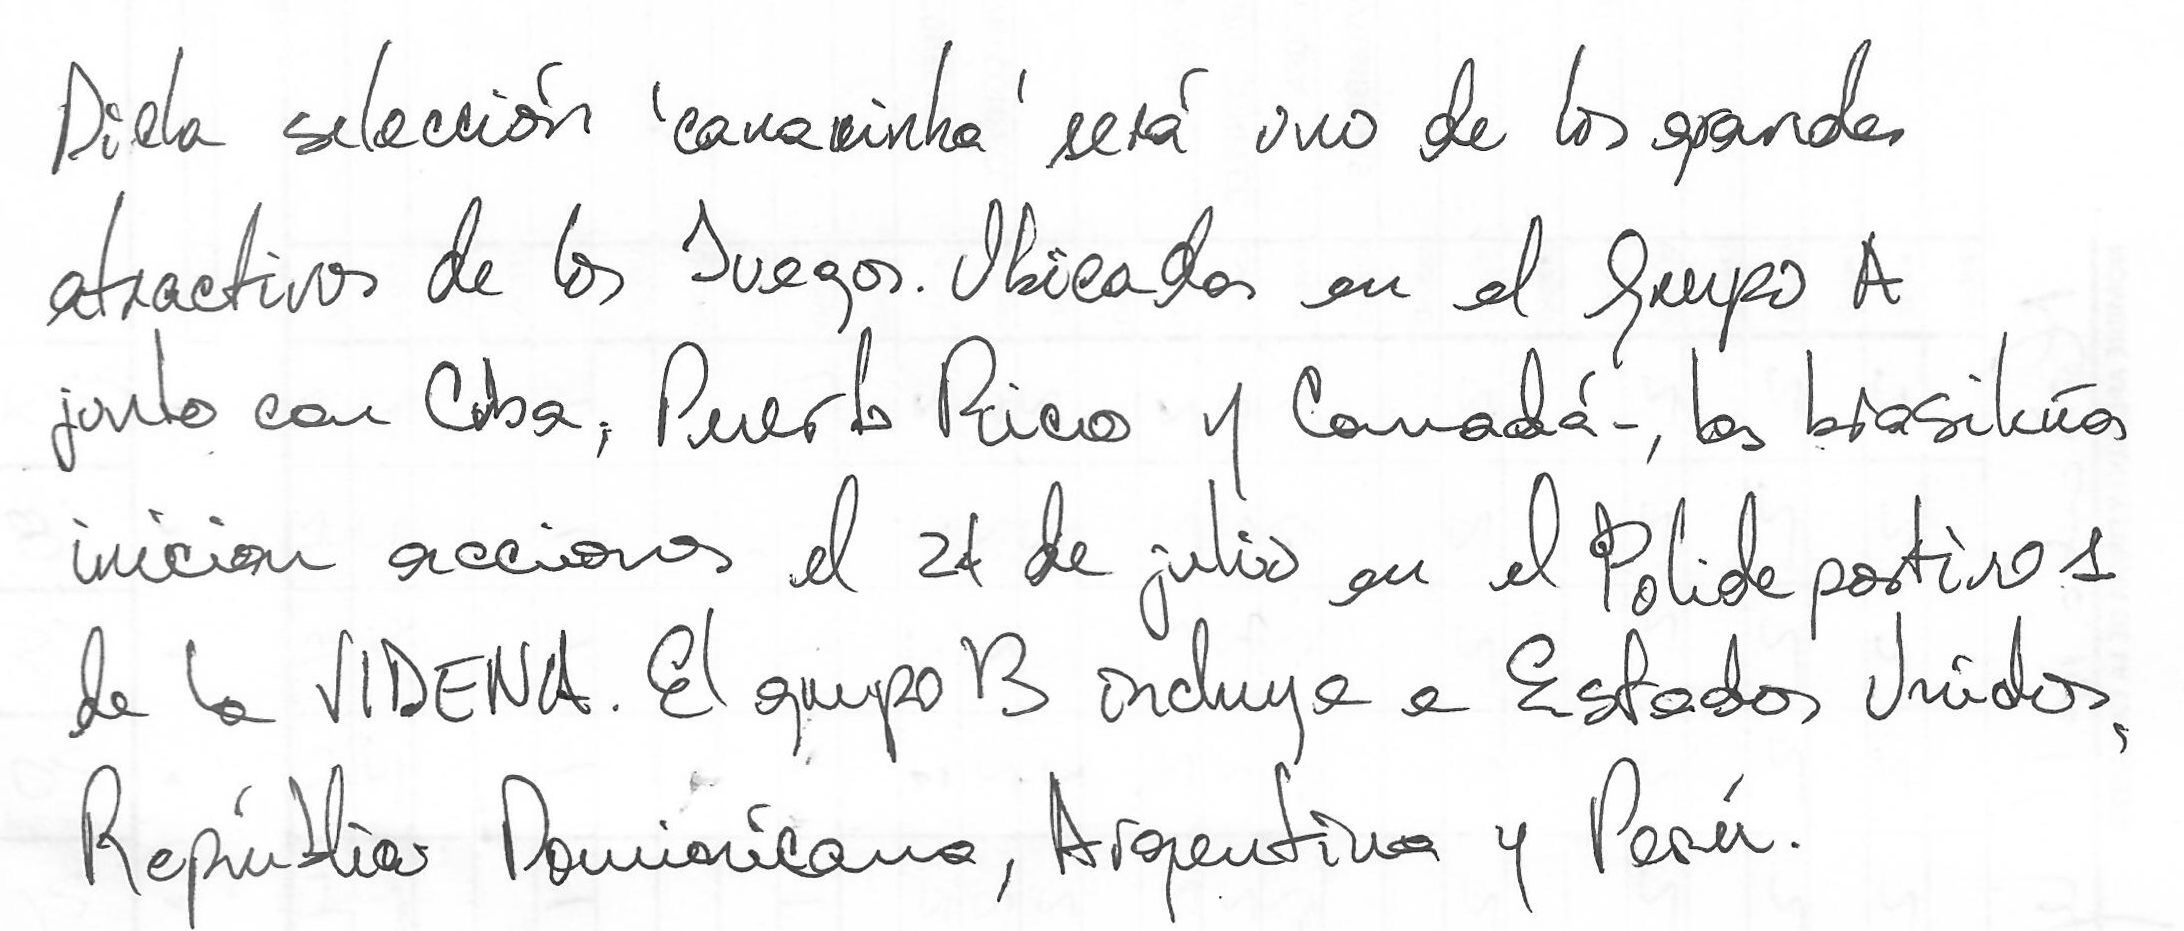 Dicha selección 'canarinha' será uno de los grandes
atractivos de los Juegos. Ubicadas en el Grupo A
junto con Cuba, Puerto Rico y Canadá-, las brasileñas
inician acciones el 24 de julio en el Polideportivo 1
de la VIDENA. El grupo B incluye a Estados Unidos,
República Dominicana, Argentina y Perú.